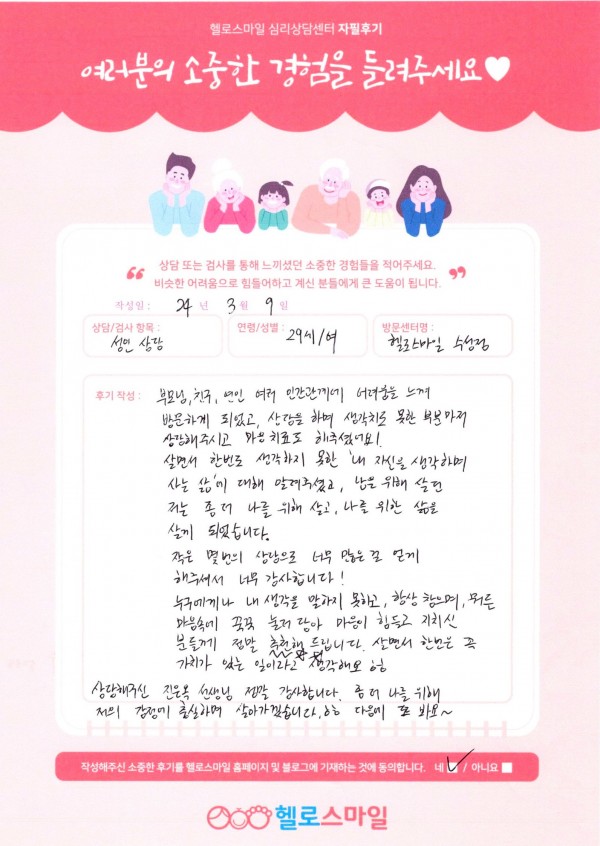 헬로스마일 심리상담센터 자필후기
여러분의 소중한 경험을 들려주세요♥
상담 또는 검사를 통해 느끼셨던 소중한 경험들을 적어주세요.
비슷한 어려움으로 힘들어하고 계신 분들에게 큰 도움이 됩니다.
작성일 : 24 년 3 월 9 일
상담/검사 항목 : 성인 상담
연령/성별 : 29세/여
방문센터명 : 헬로스마일 수성점
후기 작성 : 부모님, 친구, 연인 여러 인간관계에 어려움을 느껴
방문하게 되었고, 상담을 하며 생각치도 못한 부분마저
상담해주시고 마음치료도 해주셨어요!
살면서 한번도 생각하지 못한 '내 자신을 생각하며
사는 삶'에 대해 알려주셨고, 남을 위해 살던
저는 좀 더 나를 위해 살고, 나를 위한 삶을
살게 되었습니다.
작은 몇번의 상담으로 너무 많은 걸 얻게
해주셔서 너무 감사합니다!
누구에게나 내 생각을 말하지 못하고, 항상 참으며, 뭐든
마음속에 꾹꾹 눌러 담아 마음이 힘들고 지치신
분들께 정말 추천해 드립니다. 살면서 한번은 꼭
가치가 있는 일이라고 생각해요 ㅎㅎ
상담해주신 진은복 선생님 정말 감사합니다. 좀 더 나를 위해
저의 감정에 충실하며 살아가겠습니다.ㅎㅎ 다음에 또 봐요~
작성해주신 소중한 후기를 헬로스마일 홈페이지 및 블로그에 기재하는 것에 동의합니다. 네 / 아니요
헬로스마일